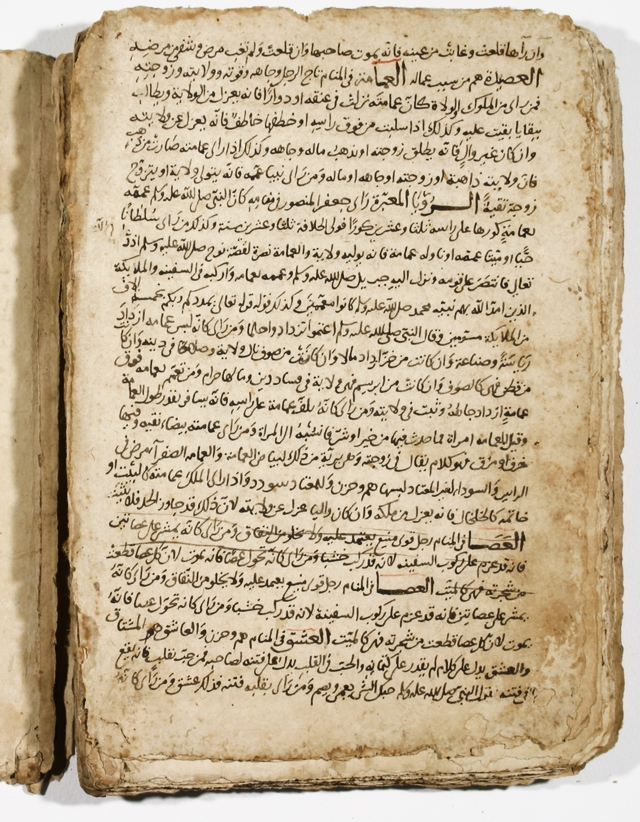 وان رآها قلعت وغابت من عينه فانه يموت صاحبها وان قلعت ولم تغب مرض وشفي من مرضه
العصيدة هم من سبب عماله العمامة في المنام تاج الرجل وجاهه وقوته وولايته وزوجته
فمن راى من الملوك او الولاة كان عمامته نزلت في عنقه او دوارا فانه يعزل من الولاية ويطالب
ببقايا بقيت عليه وكذلك اذا سلبت من فوق راسه او خطفها خاطف فانه يعزل عن ولايته
وان كان غير وال فانه يطلق زوجته او يذهب ماله وجاهه وكذلك اذا راى عمامته صارت من ذهب
فان ولايته ذاهبة او زوجته او جاهه او ماله ومن راى نبيا عممه فانه يتولى ولاية او يتزوج
زوجة تقية الرؤيا المعتبرة راى جعفر المنصور في منامه كان النبي صلى الله عليه وسلم عممه
بعمامة كورها على راسه ثلثا وعشرين كورا فولي الخلافة ثلثا وعشرين سنة وكذلك من راى سلطانا
حيا او ميتا عممه او ناوله عمامة فانه يوليه ولاية والعمامة نصرة لقصة نوح صلى الله عليه وسلم
تعالى فانتصر على قومه ونزل اليه جبريل صلى الله عليه وسلم وعممه بعمامة واركبه في السفينه والملايكة
الذين امد الله بهم نبيه محمد صلى الله عليه وسلم كانوا معممين وكذلك قوله تعالى يمددكم ربكم بخمسة الاف
من الملايكة مسومين وقال النبي صلى الله عليه وسلم اعتموا تزدادوا حلما ومن راى كانه لبس عمامة ازداد
رياسة وصناعة وان كانت من خز ازداد مالا وان كانت من صوف نال ولاية وصلاحا في دينه وان كانت
من قطن فهي كالصوف وان كانت من ابريسم فهي ولاية في فساد دين ومالها حرام ومن تعمم بعمامة فوق
عمامة ازداد جاهه وثبت في ولايته ومن راى كانه يلف عمامة على راسه فانه يسافر بقدر طول العمامة
وقيل العمامه امراة فما حدث فيها من خير او شر فانسبه الى المراة ومن راى عمامته بيضاء نقيه وفيها
خرق او مزق فهو كلام يقال في زوجته وهي برية من ذلك لبياض العمامة والعمامه الصفرا مرض في
الراس والسودا لغير المعتاد لبسها هم وحزن وللمعتاد سودد واذا راى الملك عمامته كالبيت او
خاتمه كالخلخال فانه يعزل من ملكه وان كان واليا عزل عن ولايته لان ذلك قد جاوز الحد فلا يثبت
العصا في المنام رجل قوي منيع يعتمد عليه ولا يخلو من النفاق ومن راى كانه يمشي على عصاتين
فانه قد عزم على ركوب السفينه لانه قد ركب خشبا ومن راى كانه تحول عصا فانه يموت لان كل عصا قطعت
من شجرته فهي كالميت العصا في المنام رجل قوي منيع يعتمد عليه ولا يخلو من النفاق ومن راى كانه
يمشي على عصاتين فانه قد عزم على ركوب السفينة لانه قد ركب خشبا ومن راى كانه تحول عصا فانه
يموت لان كل عصا قطعت من شجرته فهي كالميت العشق في المنام هم وحزن والعاشق هو المشتاق
والعشق يدل على كلام لم يقدر على كتمانه والحب في القلب يدل على فتنة لصاحبه فمن حب بقلبه فانه يقع
في فتنة لقول النبي صلى الله عليه وسلم حبك الشى يعمي ويصم ومن راى بقلبه فتنه فذلك عشق ومن راى كانه